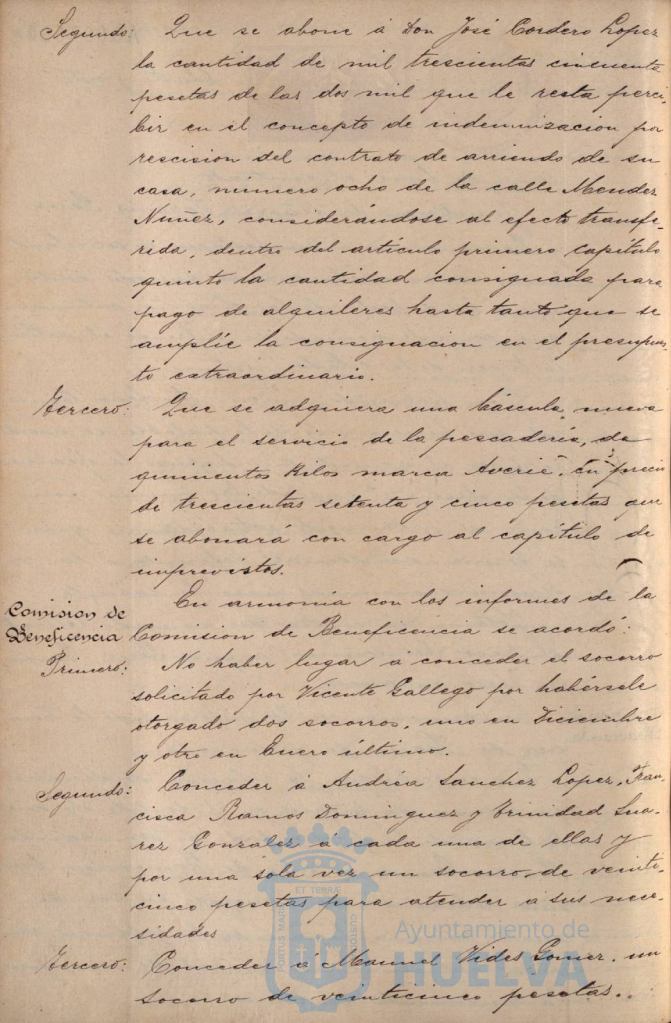 Segundo: Que se abone á Don José Cordero Lopez
la cantidad de mil trescientas cincuenta
pesetas de las dos mil que le resta perci-
bir en el concepto de indemnizacion por
rescision del contrato de arriendo de su
casa, número ocho de la calle Mendez
Nuñez, considerándose al efecto transfe-
rida, dentro del artículo primero capítulo
quinto la cantidad consignada para
pago de alquileres hasta tanto que se
amplíe la consignacion en el presupues-
to extraordinario.
Tercero: Que se adquiera una báscula nueva
para el servicio de la pescadería, de
quinientos Kilos marca Averie, en precio
de trescientas setenta y cinco pesetas que
se abonará con cargo al capítulo de
imprevistos.
Comision de
Beneficencia
En armonía con los informes de la
Comision de Beneficencia se acordó:
Primero: No haber lugar á conceder el socorro
solicitado por Vicente Gallego por habérsele
otorgado dos socorros, uno en Diciembre
y otro en Enero último.
Segundo: Conceder á Andréa Sanchez Lopez, Fran-
cisca Ramos Dominguez y Trinidad Sua-
rez Gonzalez á cada una de ellas y
por una sola vez un socorro de veinti-
cinco pesetas para atender á sus nece-
sidades
Tercero: Conceder á Manuel Vides Gomez, un
socorro de veinticinco pesetas.
PORTUS MARIS ET TERRÆ CUSTODIA
Ayuntamiento de
HUELVA